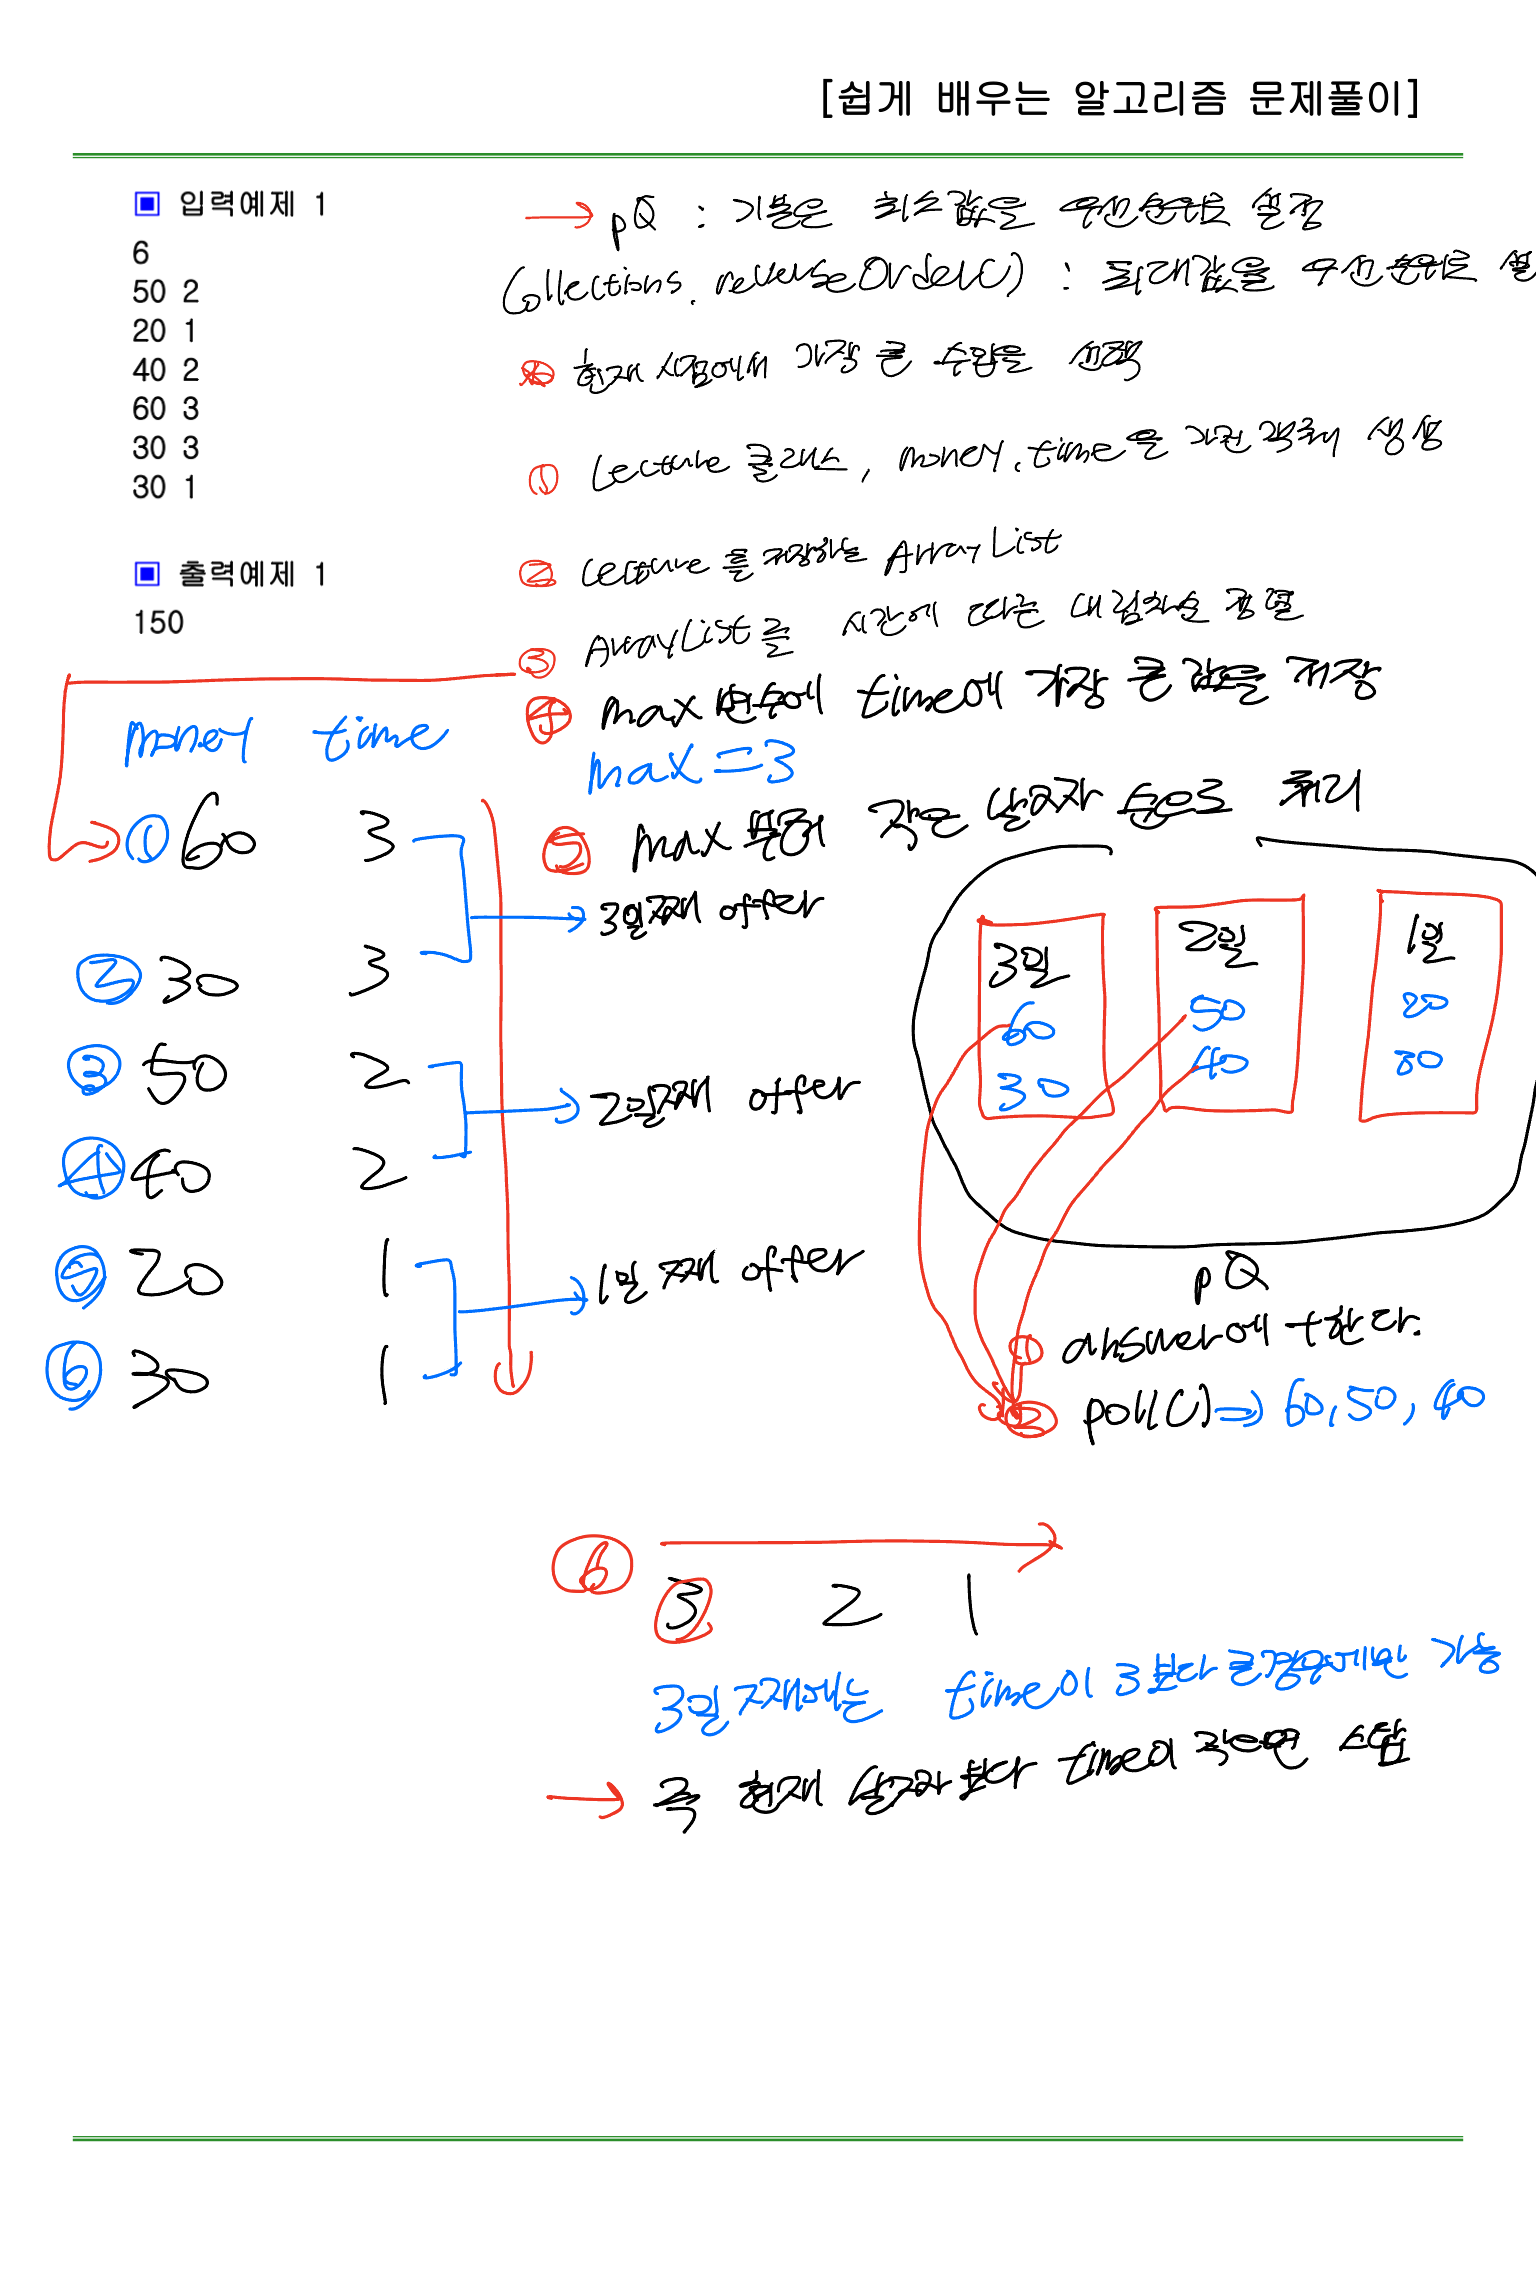 [쉽게 배우는 알고리즘 문제풀이]
▣ 입력예제 1
6
50 2
20 1
40 2
60 3
30 3
30 1
▣ 출력예제 1
150
→ pQ : 기본은 최소값을 우선순위로 설정
Collections.reverseOrder() : 최대값을 우선순위로 설
현재 시점에서 가장 큰 수입을 선택
① Lecture 클래스, money, time을 가진 객체 생성
② Lecture를 저장하는 ArrayList
③ ArrayList를 시간에 따른 내림차순 정렬
④ max 변수에 time에 가장 큰 값을 저장
max = 3
⑤ max 부터 작은 날짜 순으로 처리
money time
① 60 3
② 30 3
③ 50 2
④ 40 2
⑤ 20 1
⑥ 30 1
3일째 offer
2일째 offer
1일째 offer
3일 2일 1일
60 50 20
30 40 30
pQ
① answer에 +한다.
② poll() → 60, 50, 40
⑥ 3 2 1
3일째에는 time이 3보다 큰경우에만 가능
→ 즉 현재 날짜보다 time이 작으면 스탑